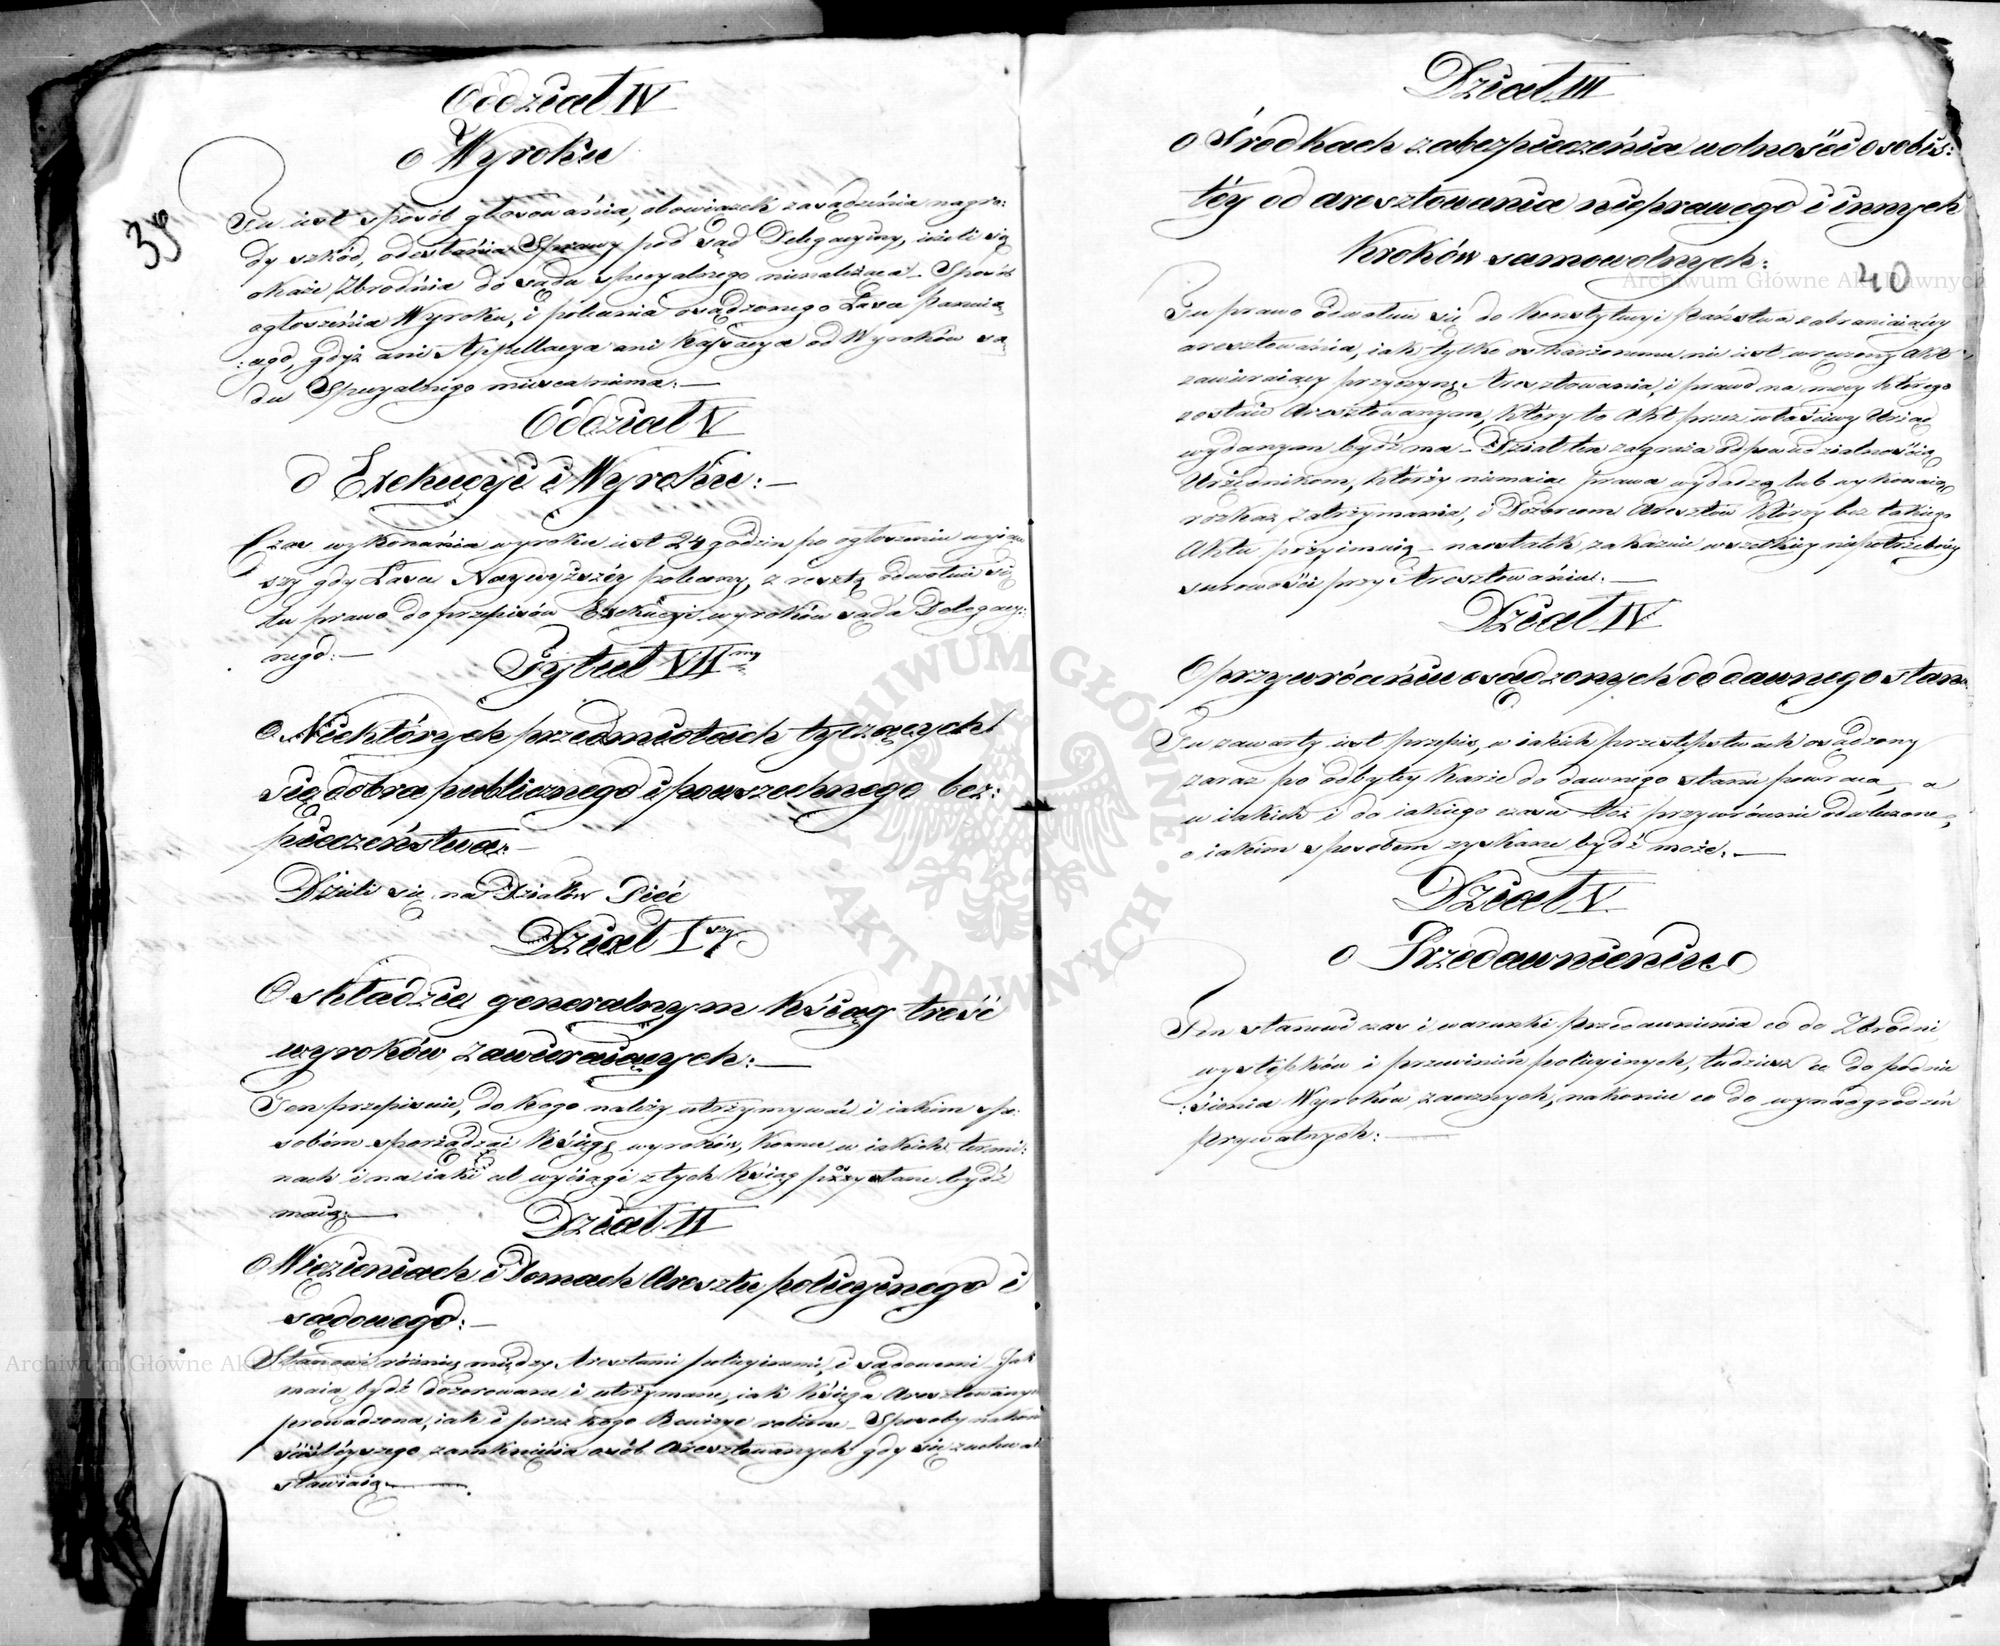 Oddział IV
o Wyroku
39
Tu iest sposób głosowánia, obowiązek zasądzénia nagro:
dy szkód, odesłánia Sprawy pod Sąd Delegacyiny, ieżeli się
okaże Zbrodnia do sądu specyalnego nienależąca. Sposób
ogłoszénia Wyroku, i polecania osądzonego Łasce panuią
:cego, gdyż ani Appellacya ani Kassacya od Wyroków są
du Specyalnego mieysca niema. —
Oddział V
o Exekucyi i Wyroku: —
Czas wykonánia wyroku iest 24 godzin po ogłoszeniu wyią
szy gdy Łasce Naywyższéy polecany, z resztą odwołuie się
tu prawo do przepisów Exekucyi wyroków sądu Delegacyi:
nego: —
Tytuł VII my
O Niektórych przedmiotach tyczących
się dobra publicznego i powszechnego bez:
pieczeństwa: —
Dzieli się na Działów Pięć
Dział I szy
O składzie generalnym Ksiąg treść
wyroków zawieraiących: —
Ten przepisuie, do kogo należy utrzymywać i iakim spo:
sobem sporządzać Księgę wyroków, komu w iakich termi:
nach i na iaki cel wyciągi z tych Ksiąg przysłane bydź
maią: —
Dział II
O Więzieniach i Domach Aresztu policyinego i
sądowego: —
Stanowi różnicę między Aresztami policyinemi, i sądowemi – Jak
maią bydź dozorowane i utrzymane, iak Księga Aresztowanych
prowadzona, iak i przez kogo Rewizye robione – Sposoby nakoniec
ściśléyszego zamknięcia osób Aresztowanych gdy się zuchwale
stawiaią —.
Dział III
o Środkach zabezpieczénia wolności osobis:
téy od aresztowania nieprawego i innych
kroków samowolnych:
40
Tu prawo odwołuie się do Konstytucyi państwa zabraniaiącey
aresztowánia, iak tylko oskarżonemu nie iest wręczony Akt
zawieraiący przyczynę Aresztowania, i prawo na mocy którego
zostaie Aresztowanym, który to Akt przez właściwy Urząd
wydanym bydź ma – Dział ten zagraża odpowiedzialnością
Urzędnikom, którzy niemaiąc prawa wydadzą lub wykonaią
rozkaz zatrzymania, i Dozorcom Aresztów którzy bez takiego
Aktu przyimuią – naostatek zakazuie wszelkiey niepotrzebney
surowości przy Aresztowániu. —
Dział IV
O przywrócéniu osądzonych do dawnego stanu
Tu zawarty iest przepis, w iakich przestępstwach osądzony
zaraz po odbytey Karze do dawnego stanu powraca, a
w iakich i do iakiego czasu też przywrócenie odwleczone,
o iakim sposobem zyskane bydź może. —
Dział V
o Przedawnieniu
Ten stanowi czas i warunki przedawnienia co do Zbrodni
występków i przewinień policyinych, tudzież co do podnie
:sienia Wyroków zaocznych, nakoniec co do wynadgrodzeń
prywatnych: —